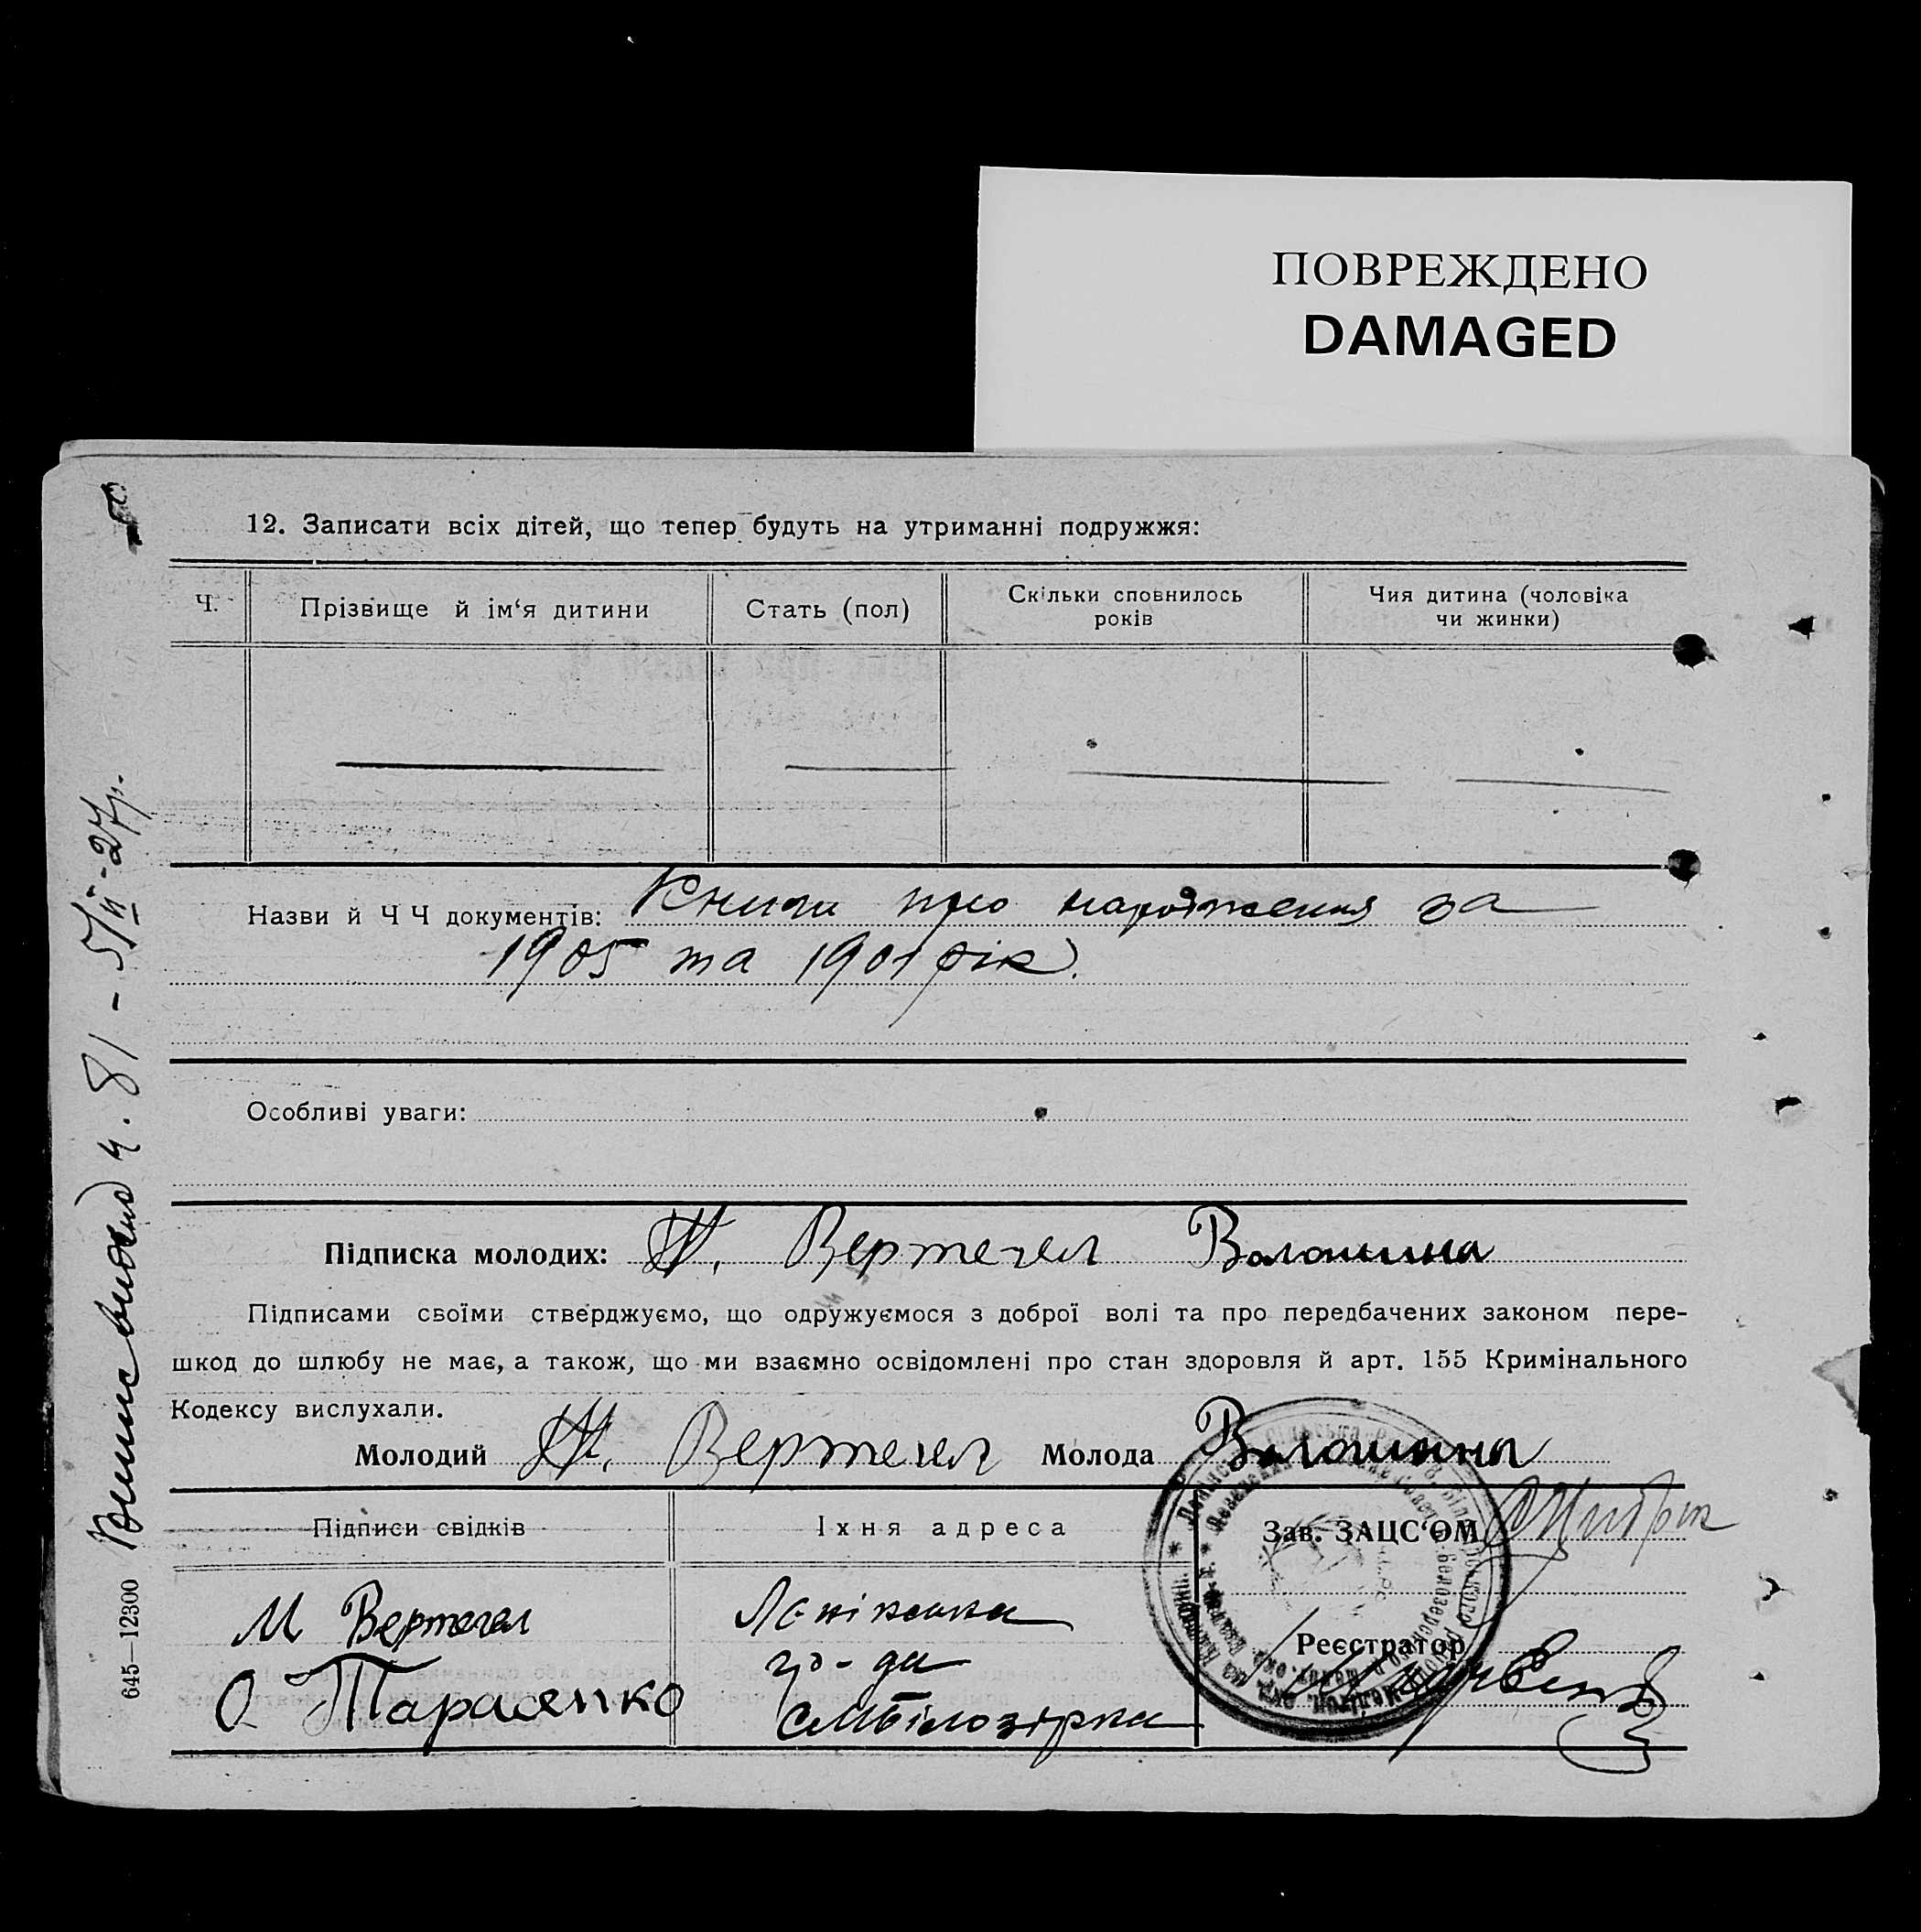 ПОВРЕЖДЕНО
DAMAGED
12. Записати всіх дітей, що тепер будуть на утриманні подружжя:
Ч. Прізвище й ім‘я дитини Стать (пол) Скільки сповнилось років Чия дитина (чоловіка чи жинки)
Назви й Ч Ч документів: Книги про народження за
1905 та 1901 рік.
Особливі уваги:
Підписка молодих: Вертегел Волошина
Підписами своїми стверджуємо, що одружуємося з доброї волі та про передбачених законом пере-
шкод до шлюбу не має, а також, що ми взаємно освідомлені про стан здоровля й арт. 155 Кримінального
Кодексу вислухали.
Молодий Вертегел Молода Волошина
Підписи свідків Їхня адреса Зав. ЗАЦС‘ОМ
М Вертегел
О. Тарасенко
гр-да
Білозірка
Реєстратор
Випис видано ч. 81 - 5/II-27р.
645—12300